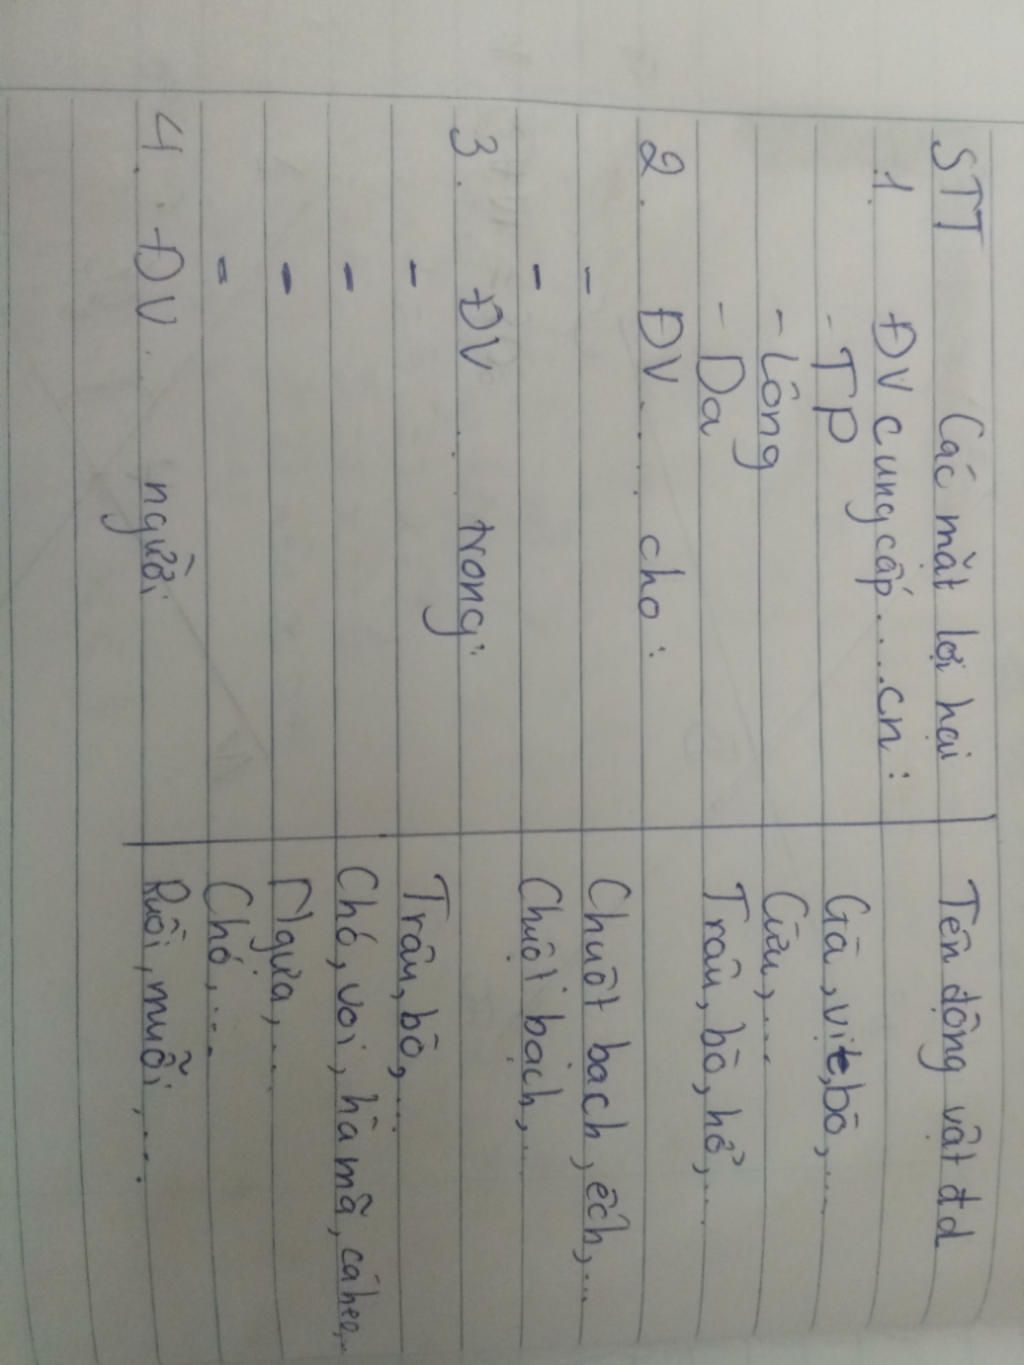 STT Các mặt lợi hại Tên động vật đd
1. ĐV cung cấp....cn:
- TP Gà, vịt, bò,....
- Lông Cừu,....
- Da Trâu, bò, hổ,....
2. ĐV.... cho:
- Chuột bạch, ếch,...
- Chuột bạch,...
3. ĐV .... trong:
- Trâu, bò,...
- Chó, voi, hà mã, cá heo,...
- Ngựa,....
- Chó,....
4. ĐV. người Ruồi, muỗi,....